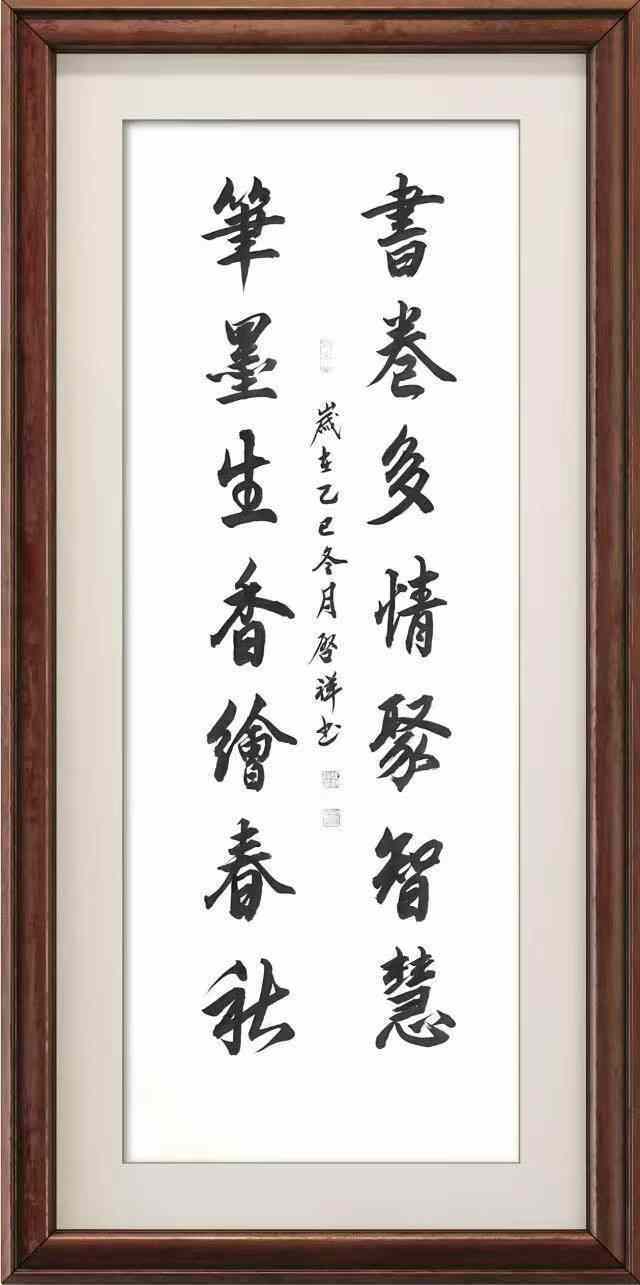 書卷多情聚智慧
歲在乙巳冬月啓祥书
筆墨生香繪春秋